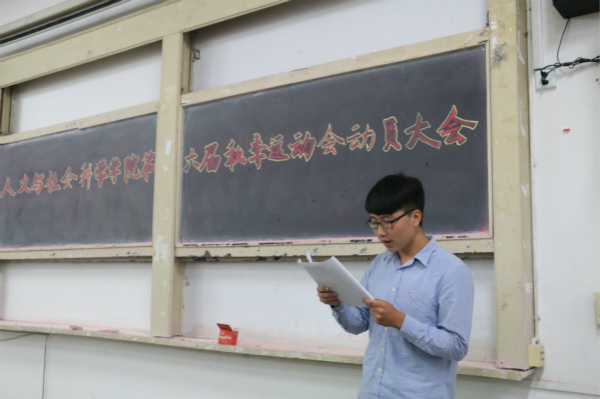 人文与社会科学学院第六届秋季运动会动员大会